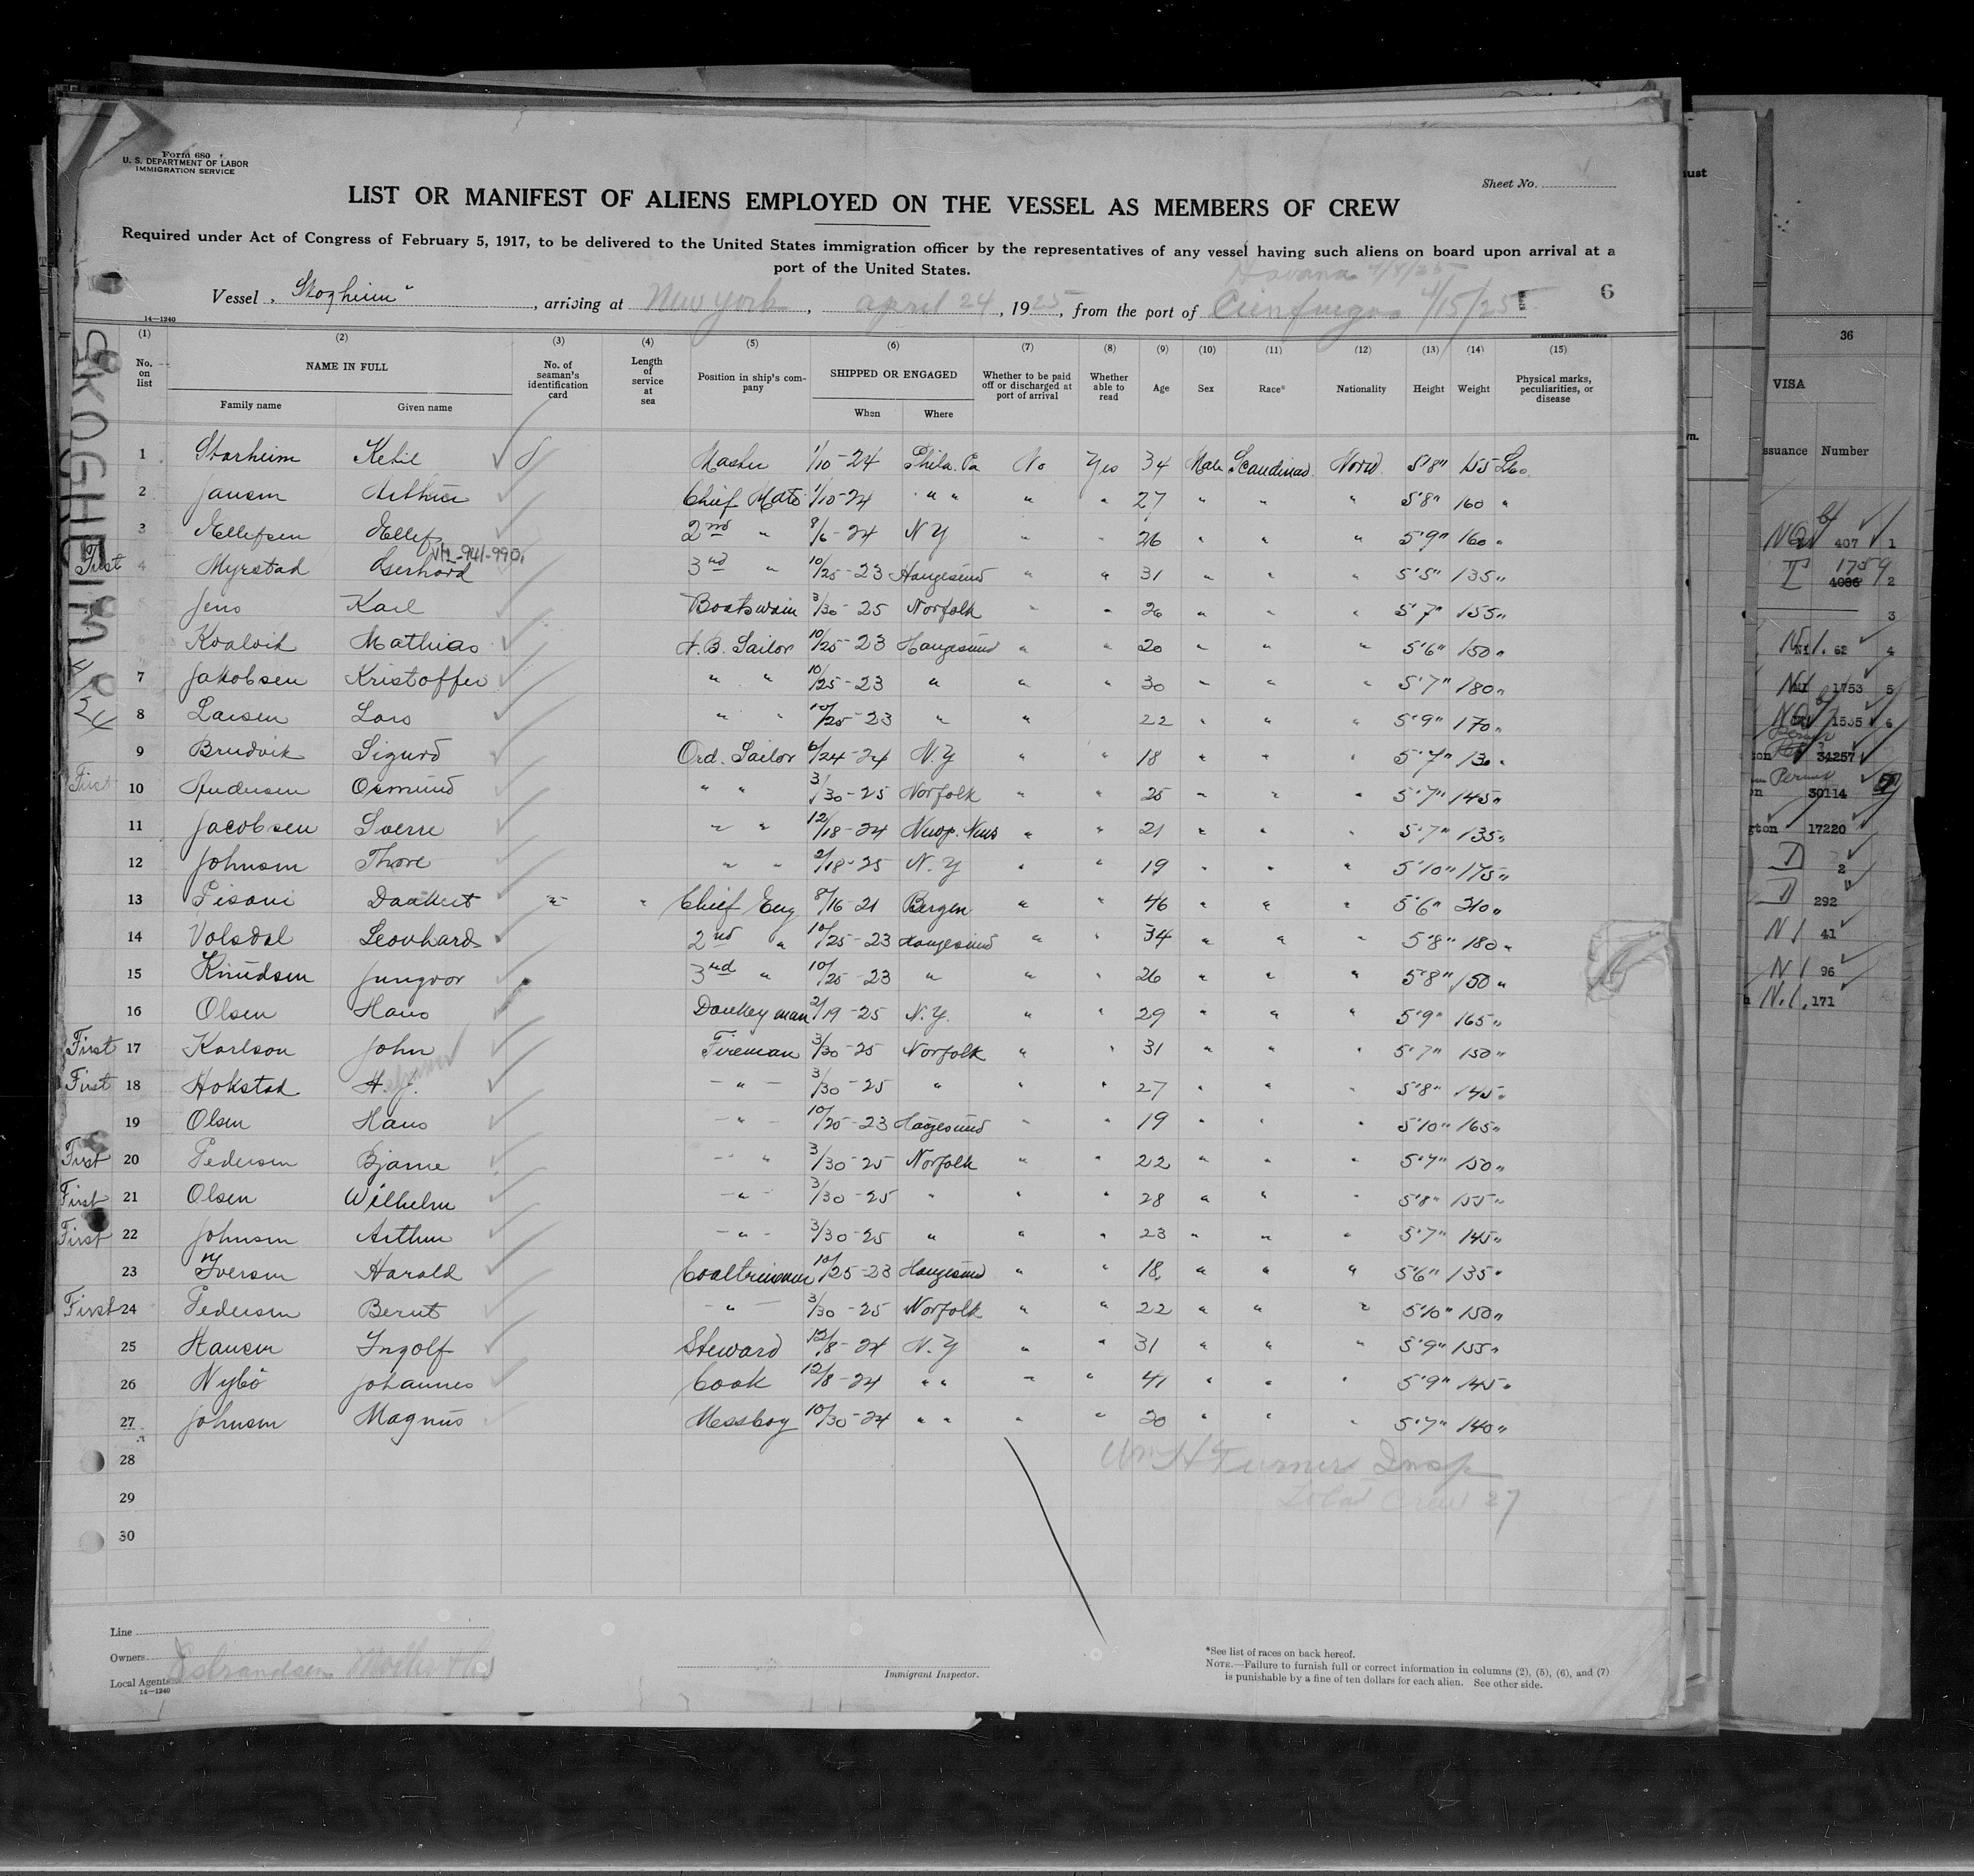 Form 680
U. S. DEPARTMENT OF LABOR
IMMIGRATION SERVICE
Sheet No.
LIST OR MANIFEST OF ALIENS EMPLOYED ON THE VESSEL AS MEMBERS OF CREW
Required under Act of Congress of February 5, 1917, to be delivered to the United States immigration officer by the representatives of any vessel having such aliens on board upon arrival at a
port of the United States.
Havana 4/8/25
Vessel "Skogheim", arriving at New York, april 24, 1925, from the port of Cienfuegos 4/15/25
6
14—1240
SKOGHEIM 4/24
(1) (2) (3) (4) (5) (6) (7) (8) (9) (10) (11) (12) (13) (14) (15)
No. on list NAME IN FULL Family name Given name No. of seaman's identification card Length of service at sea Position in ship's company SHIPPED OR ENGAGED When Where Whether to be paid off or discharged at port of arrival Whether able to read Age Sex Race* Nationality Height Weight Physical marks, peculiarities, or disease
1 Storheim Ketil Master 1/10-24 Phila. Pa No Yes 34 Male Scandinav. Norw. 5'8" 155 Lbs.
2 Jansen Arthur Chief Mate 1/10-24 " " " " 27 " " " 5'8" 160 "
3 Ellefsen Ellef 2nd " 8/6-24 N Y " " 26 " " " 5'9" 160 "
VL-941-990
First 4 Myrstad Gerhard 3rd " 10/25-23 Haugesund " " 31 " " " 5'5" 135 "
Jens Karl Boatswain 3/30-25 Norfolk " " 26 " " " 5'7" 155 "
Kvalvik Mathias A.B. Sailor 10/25-23 Haugesund " " 20 " " " 5'6" 150 "
7 Jakobsen Kristoffer " " 10/25-23 " " " 30 " " " 5'7" 180 "
8 Larsen Lars " " 10/25-23 " " 22 " " " 5'9" 170 "
9 Brudvik Sigurd Ord. Sailor 6/24-24 N.Y " " 18 " " " 5'7" 130 "
First 10 Andersen Osmund " " 3/30-25 Norfolk " " 25 " " " 5'7" 145 "
11 Jacobsen Sverre " " 12/18-24 Newp. News " " 21 " " " 5'7" 135 "
12 Johnsen Thore " " 2/18-25 N. Y " " 19 " " " 5'10" 175 "
13 Pisani " " Chief Eng 8/16-21 Bergen " " 46 " " " 5'6" 210 "
14 Volsdal Leonhard 2nd " 10/25-23 Haugesund " " 34 " " " 5'8" 180 "
15 Knudsen Jungvor 3rd " 10/25-23 " " " 26 " " " 5'8" 150 "
16 Olsen Hans Donkeyman 2/19-25 N.Y. " " 29 " " " 5'9" 165 "
First 17 Karlson John Fireman 3/30-25 Norfolk " " 31 " " " 5'7" 150 "
First 18 Hokstad H. J. " 3/30-25 " " " 27 " " " 5'8" 145 "
19 Olsen Hans " 10/25-23 Haugesund " " 19 " " " 5'10" 165 "
First 20 Pedersen Bjarne " 3/30-25 Norfolk " " 22 " " " 5'7" 150 "
First 21 Olsen Wilhelm " 3/30-25 " " " 28 " " " 5'8" 155 "
First 22 Johnsen Arthur " 3/30-25 " " " 23 " " " 5'7" 145 "
23 Iversen Harald Coaltrimmer 10/25-23 Haugesund " " 18 " " " 5'6" 135 "
First 24 Pedersen Bernt " 3/30-25 Norfolk " " 22 " " " 5'10" 150 "
25 Hansen Ingolf Steward 12/8-24 N.Y " " 31 " " " 5'9" 155 "
26 Nybö Johannes Cook 12/8-24 " " " " 41 " " " 5'9" 145 "
27 Johnsen Magnus Messboy 10/30-24 " " " " 20 " " " 5'7" 140 "
28
29
30
Wm H Turner Insp
Total Crew 27
Line
Owners
Local Agents
14—1240
Immigrant Inspector.
*See list of races on back hereof.
NOTE.—Failure to furnish full or correct information in columns (2), (5), (6), and (7)
is punishable by a fine of ten dollars for each alien. See other side.
36
VISA
ssuance Number
407 1
1759
4086 2
3
62 4
1753 5
1535 6
34257
30114
gton 17220
2
292
N I 41
N I 96
N.I. 171